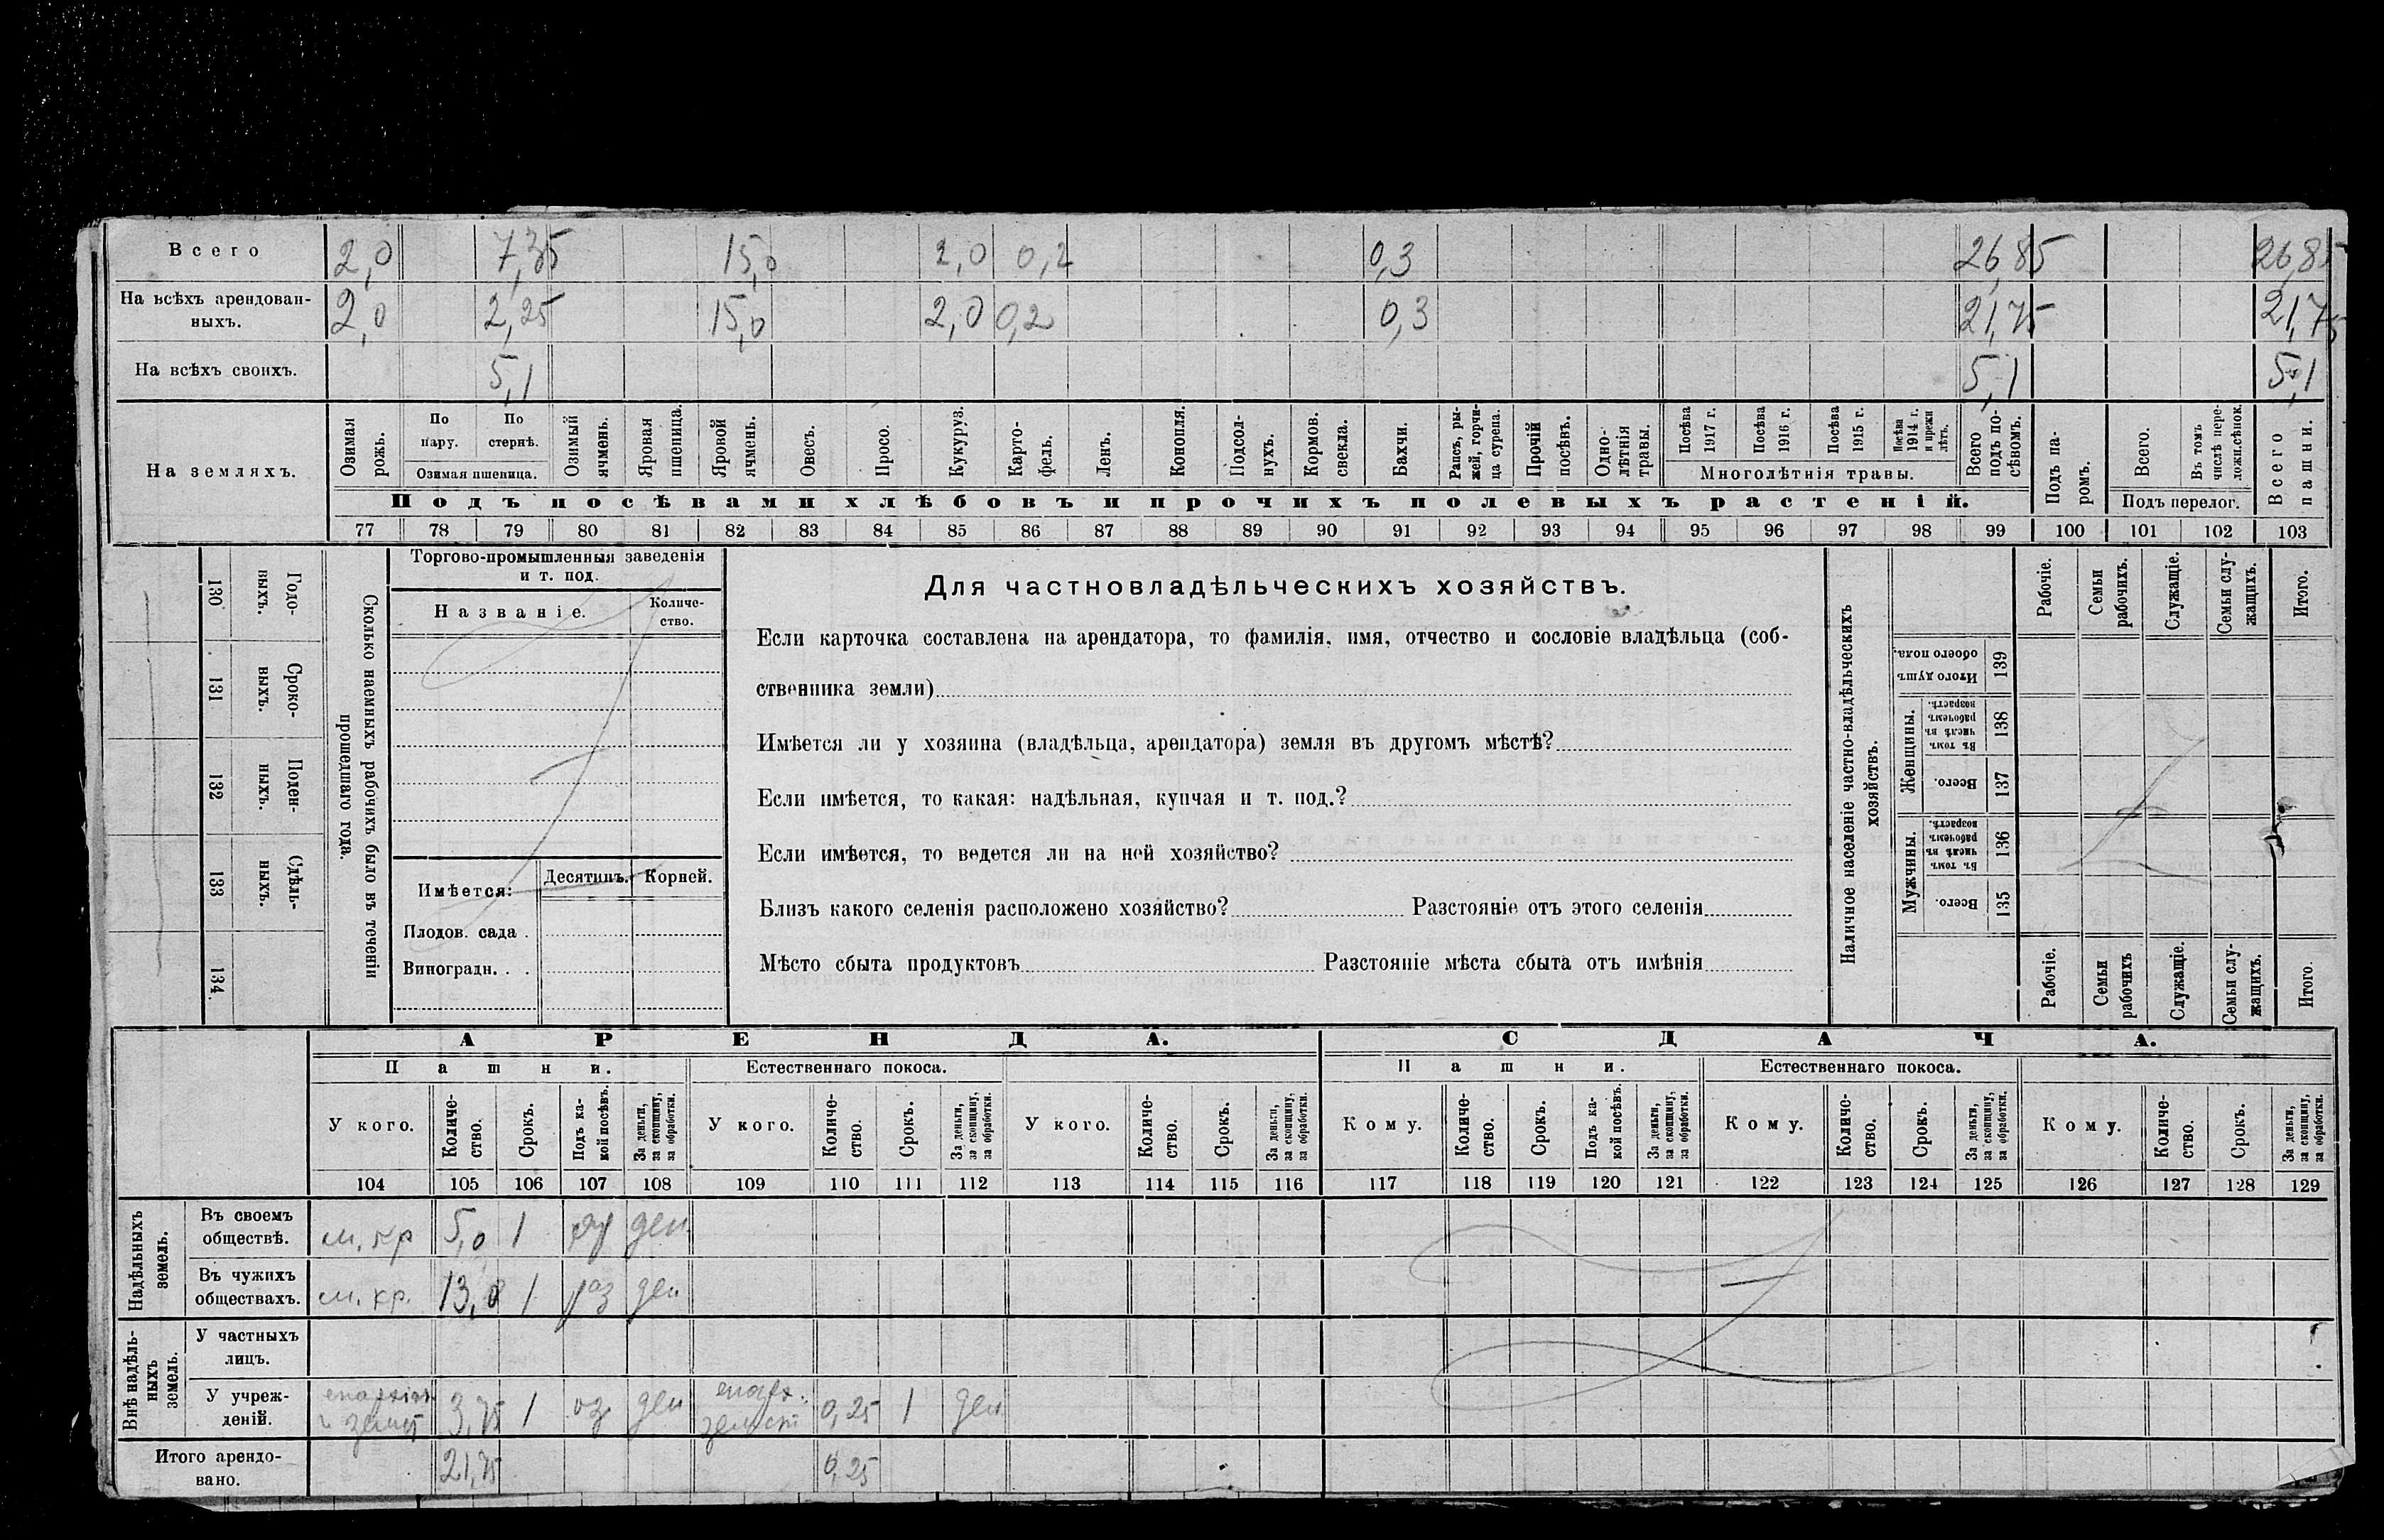 Всего 2,0 7,35 15,0 2,0 0,2 0,3 26,85 26,85
На всѣхъ арендован-
ныхъ. 2,0 2,25 15,0 2,0 0,2 0,3 21,75 21,75
На всѣхъ своихъ. 5,1 5,1 5,1
На земляхъ.
Озимая рожь.
По пару.
По стернѣ.
Озимая пшеница.
Озимый ячмень.
Яровая пшеница.
Яровой ячмень.
Овесъ.
Просо.
Кукуруз.
Карто-
фель.
Ленъ.
Конопля.
Подсол-
нухъ.
Кормов.
свекла.
Бахчи.
Рапсъ, ры-
жей, горчи-
ца сурепа.
Прочій
посѣвъ.
Одно-
лѣтнія
травы.
Посѣва
1917 г.
Посѣва
1916 г.
Посѣва
1915 г.
Посѣва
1914 г.
и прежн
лѣтъ.
Многолѣтнія травы.
Всего
подъ по-
сѣвомъ.
Подъ па-
ромъ.
Всего.
Въ томъ
числѣ пере-
ложн.сѣнок.
Подъ перелог.
Всего
пашни.
Подъ посѣвами хлѣбовъ и прочихъ полевыхъ растеній.
77 78 79 80 81 82 83 84 85 86 87 88 89 90 91 92 93 94 95 96 97 98 99 100 101 102 103
Сколько наемныхъ рабочихъ было въ теченіи
прошедшаго года.
Годо-
выхъ.
130
Сроко-
ныхъ.
131
Поден-
ныхъ.
132
Сдѣль-
ныхъ.
133
134
Торгово-промышленныя заведенія
и т. под.
Названіе.
Количе-
ство.
Имѣется: Десятинъ. Корней.
Плодов. сада .
Виноградн. . .
Для частновладѣльческихъ хозяйствъ.
Если карточка составлена на арендатора, то фамилія, имя, отчество и сословіе владѣльца (соб-
ственника земли)
Имѣется ли у хозяина (владѣльца, арендатора) земля въ другомъ мѣстѣ?
Если имѣется, то какая: надѣльная, купчая и т. под.?
Если имѣется, то ведется ли на ней хозяйство?
Близъ какого селенія расположено хозяйство? Разстояніе отъ этого селенія
Мѣсто сбыта продуктовъ Разстояніе мѣста сбыта отъ имѣнія
Наличное населеніе частно-владѣльческихъ
хозяйствъ.
Рабочіе.
Семьи
рабочихъ.
Служащіе.
Семьи слу-
жащихъ.
Итого.
Итого душъ
обоего пола.
139
Женщины.
Въ томъ
числѣ въ
рабочемъ
возрастѣ.
138
Всего.
137
Мужчины.
Въ томъ
числѣ въ
рабочемъ
возрастѣ.
136
Всего.
135
Рабочіе.
Семьи
рабочихъ
Служащіе.
Семьи слу-
жащихъ.
Итого.
АРЕНДА. СДАЧА.
Пашни. Естественнаго покоса. Пашни. Естественнаго покоса.
У кого.
Количе-
ство.
Срокъ.
Подъ ка-
кой посѣвъ.
За деньги,
за скопщину,
за обработки.
У кого.
Количе-
ство.
Срокъ.
За деньги,
за скопщину,
за обработки.
У кого.
Количе-
ство.
Срокъ.
За деньги,
за скопщину,
за обработки.
Кому.
Количе-
ство.
Срокъ.
Подъ ка-
кой посѣвъ.
За деньги,
за скопщину,
за обработки.
Кому.
Количе-
ство.
Срокъ.
За деньги,
за скопщину,
за обработки.
Кому.
Количе-
ство.
Срокъ.
За деньги,
за скопщину,
за обработки.
104 105 106 107 108 109 110 111 112 113 114 115 116 117 118 119 120 121 122 123 124 125 126 127 128 129
Надѣльныхъ
земель.
Въ своемъ
обществѣ. м. кр 5,0 1 ден
Въ чужихъ
обществахъ. м. кр. 13,0 1 раз ден
Внѣ надѣль-
ныхъ
земель.
У частныхъ
лицъ.
У учреж-
деній. 3,75 1 оз ден 0,25 1 ден
Итого арендо-
вано. 21,75 0,25